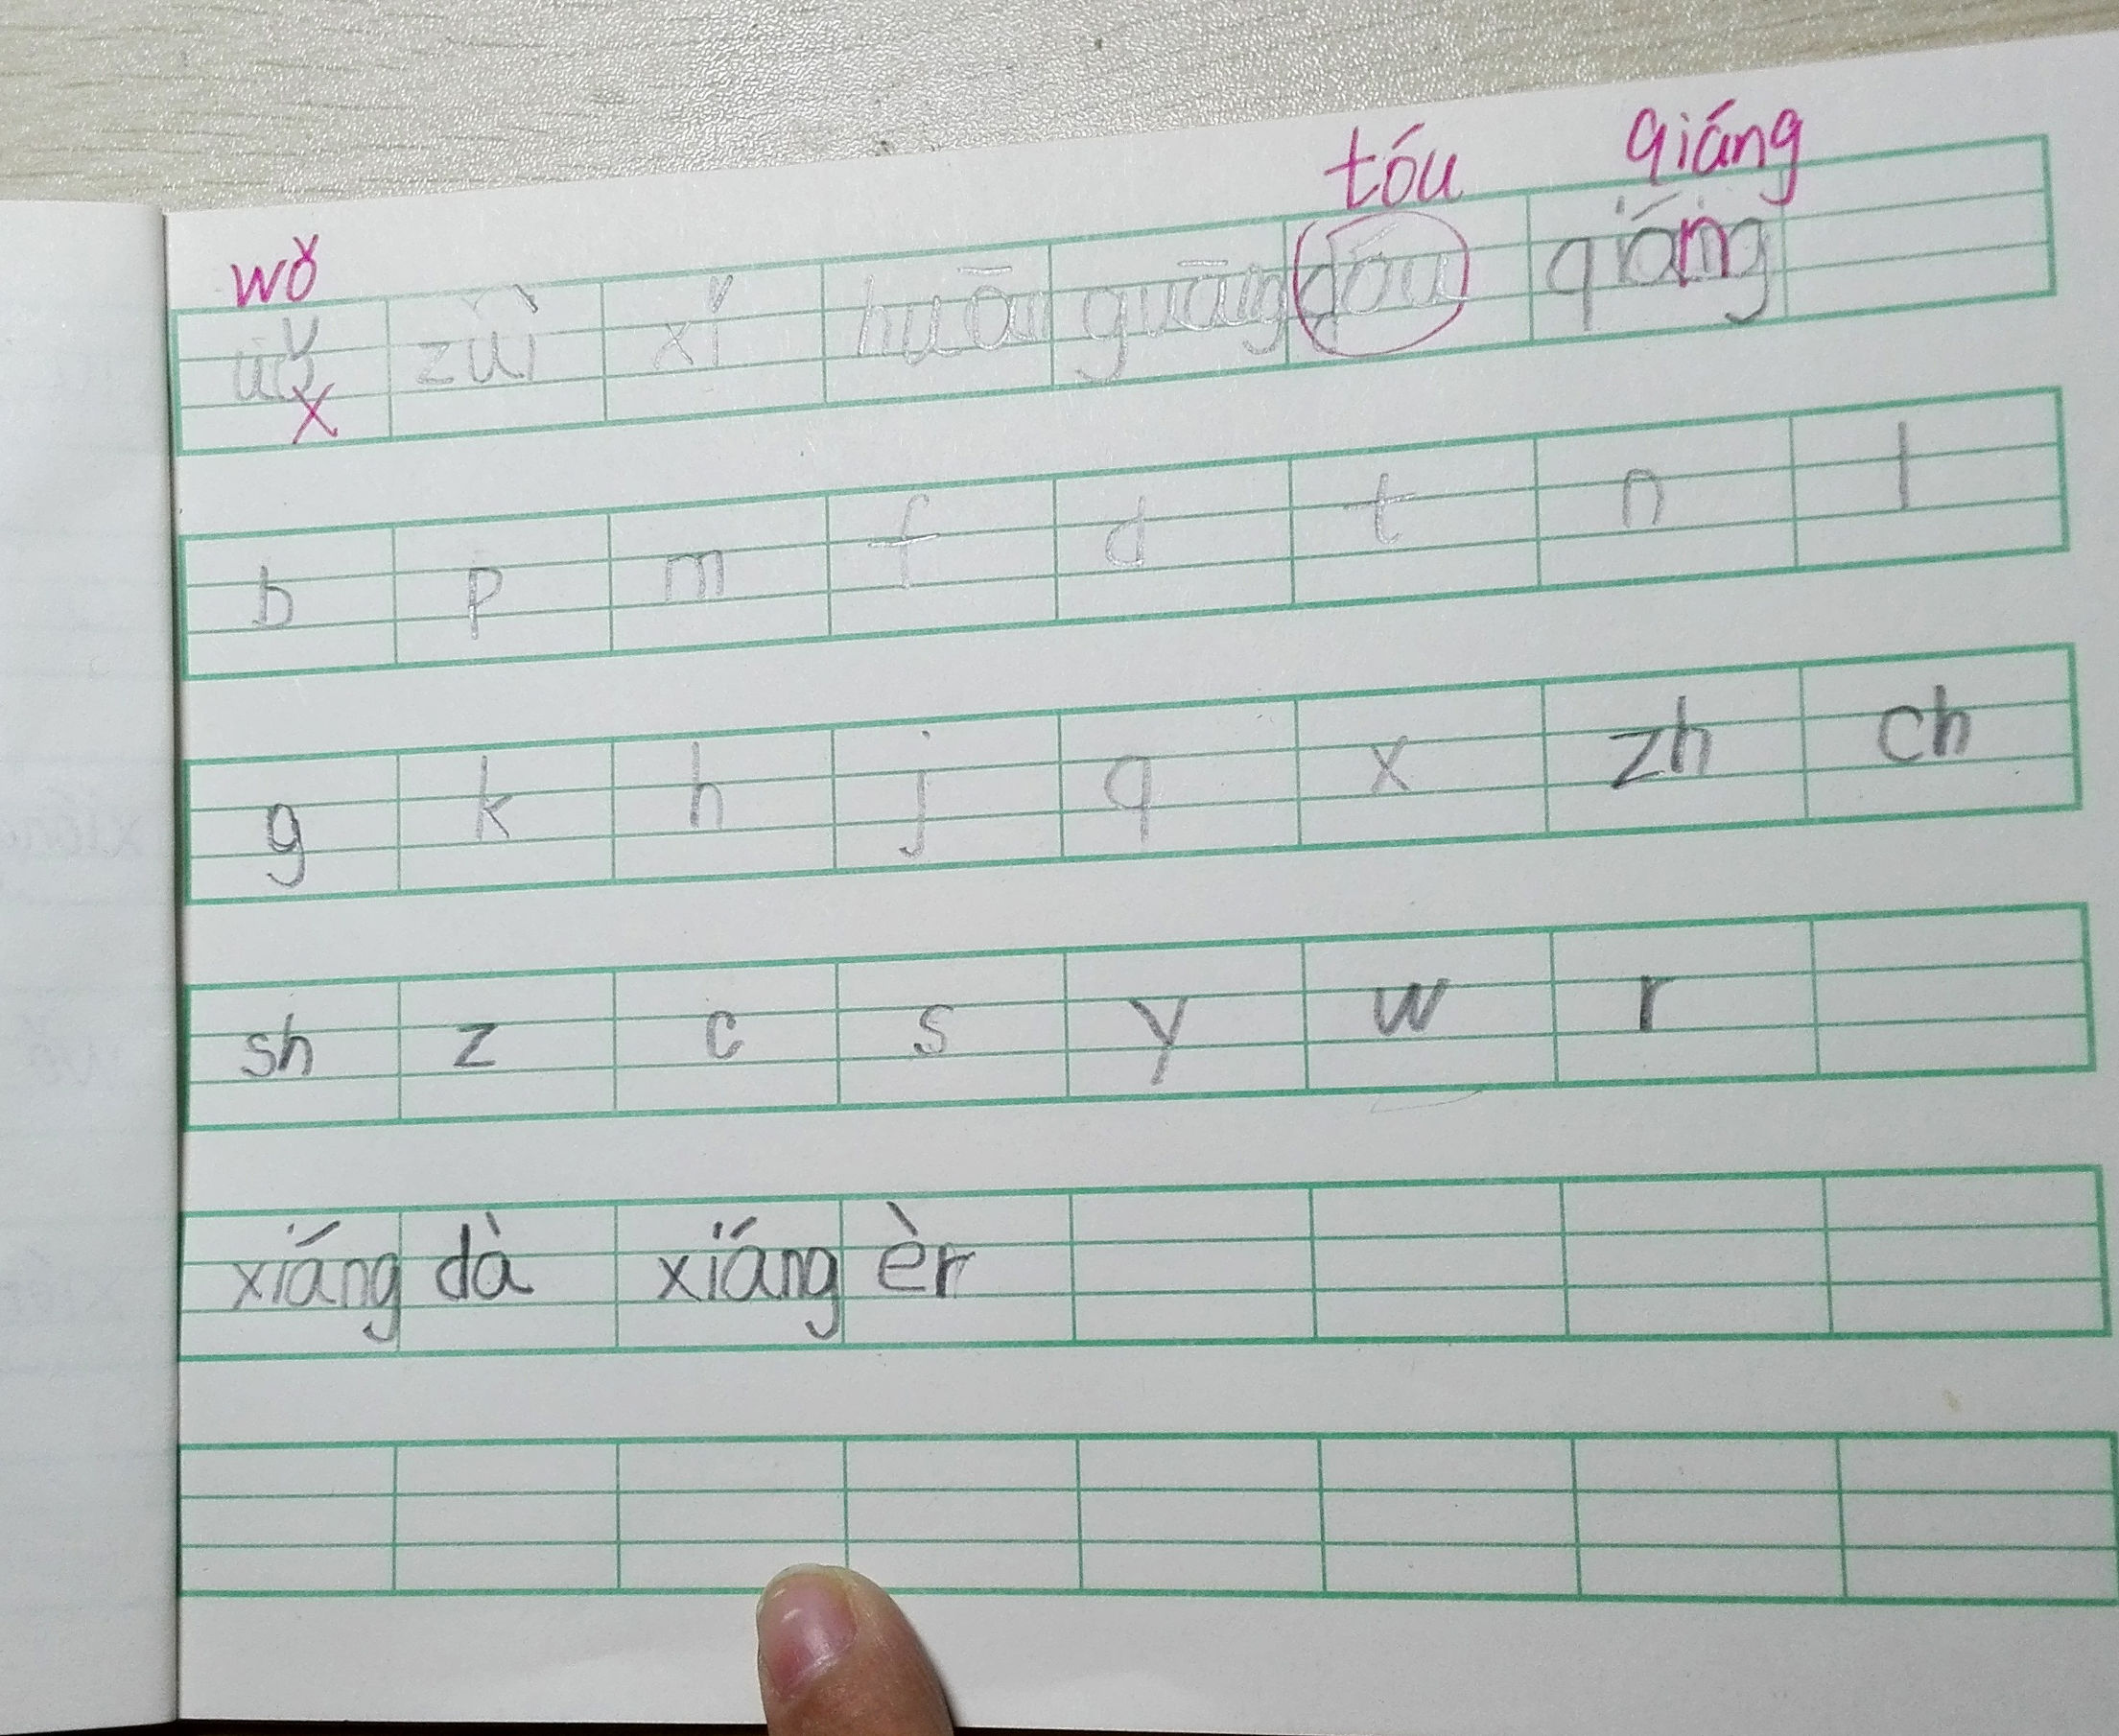 wǒ tóu qiáng
zuì xǐ huān guāng dóu qiáng
x
b p m f d t n l
g k h j q x zh ch
sh z c s y w r
xiáng dà xiáng èr